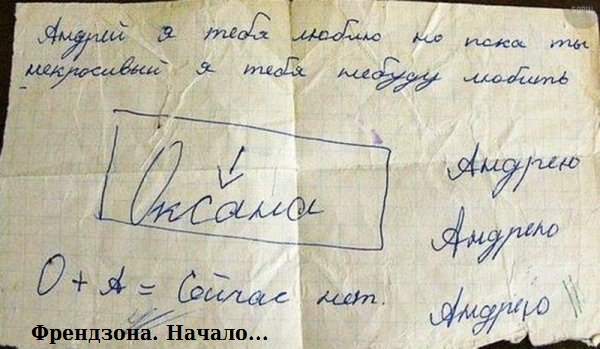 Андрей я тебя люблю но пока ты
некросивый я тебя небуду любить
Оксана
Андрею
Андрею
Андрею
О + А = Сейчас нет.
Френдзона. Начало...